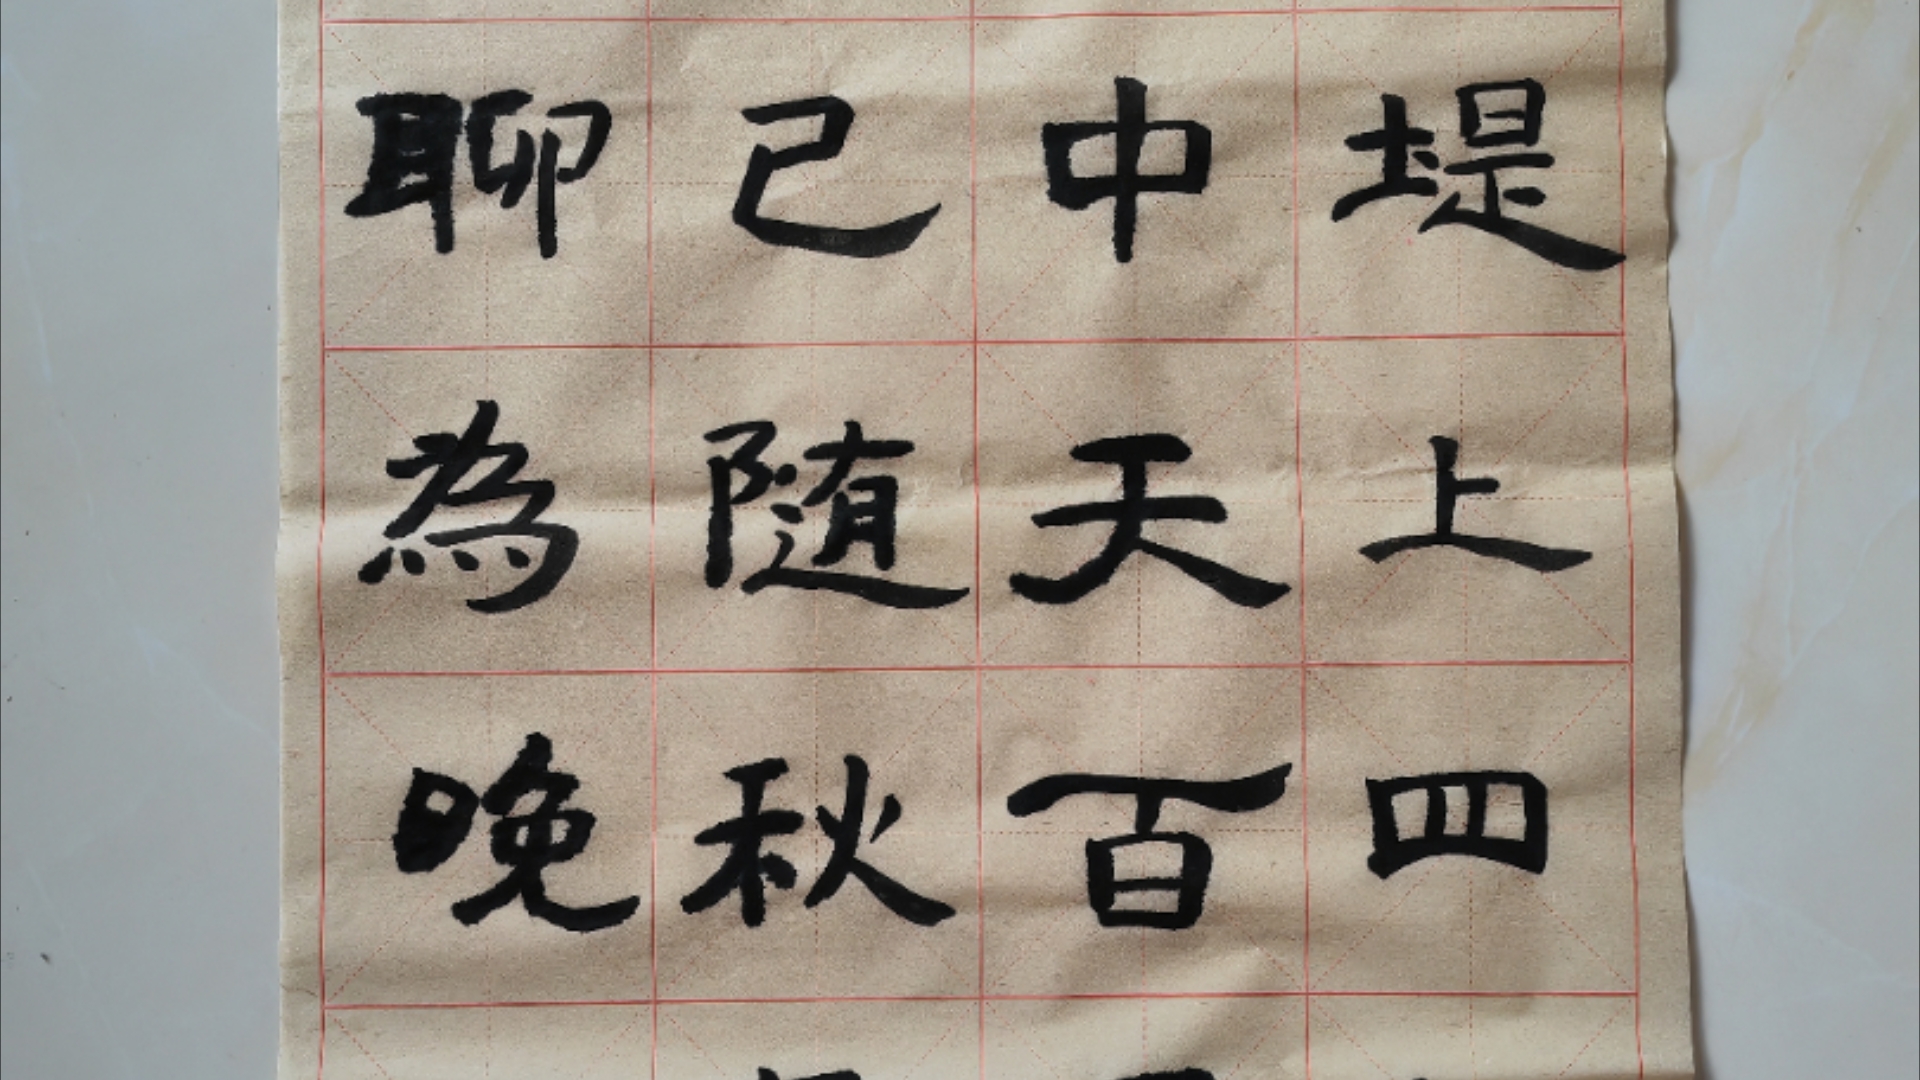 堤上四
中天百
已随秋
聊為晚